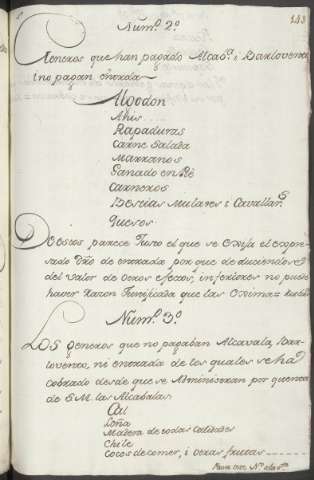 143
Num.º 2º
Generos que han pagado Alcav.ª i Barlovento
i no pagan entrada
Algodon
Ahis
Rapaduras
Carne Salada
Marranos
Ganado en Pie
Carneros
Bestias Mulares i Cavallar.s
Quesos
De estos parece Justo el que se exija el expre-
sado dro de entrada por que deduciendose
del valor de otros efectos, inferiores no puede
haver razon Justificada que las exima
Num.º 3º
Los generos que no pagaban Alcavala, Bar-
lovento, ni entrada de los quales se ha
cobrado desde que se Administran por quenta
de S.M. las Alcabalas.
Cal
Leña
Madera de todas calidades
Chile
Cocos de comer, i otras frutas